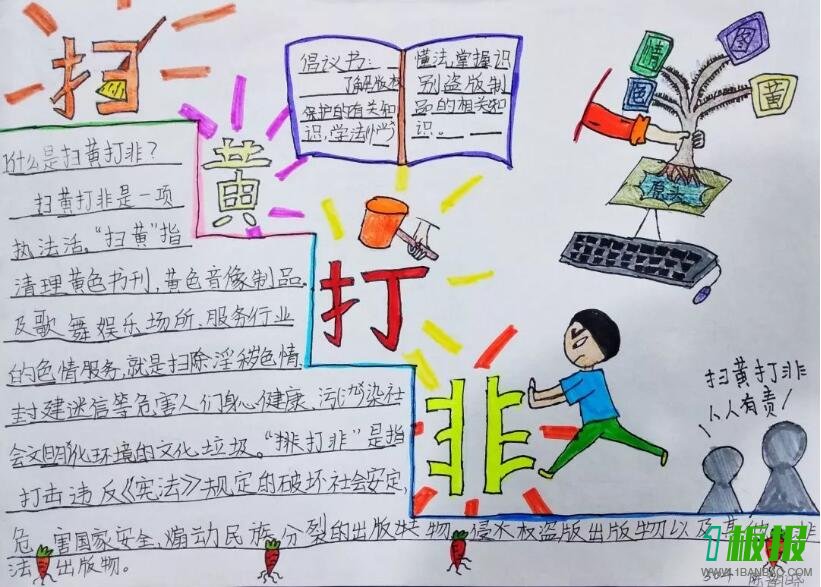 扫
黄
打
非
倡议书:
了解版权
保护的有关知
识,学法
懂法,掌握识
别盗版制
品的相关知
识。
情
图
色
黄
源头
什么是扫黄打非?
扫黄打非是一项
执法活。“扫黄”指
清理黄色书刊,黄色音像制品,
及歌舞娱乐场所、服务行业
的色情服务,就是扫除淫秽色情,
封建迷信等危害人们身心健康、污染社
会文明化环境的文化垃圾。“打非”是指
打击违反《宪法》规定的破坏社会安定,
危害国家安全,煽动民族分裂的出版物,侵权盗版出版物以及其他非
法出版物。
扫黄打非
人人有责
1板报
WWW.1BANBAO.COM